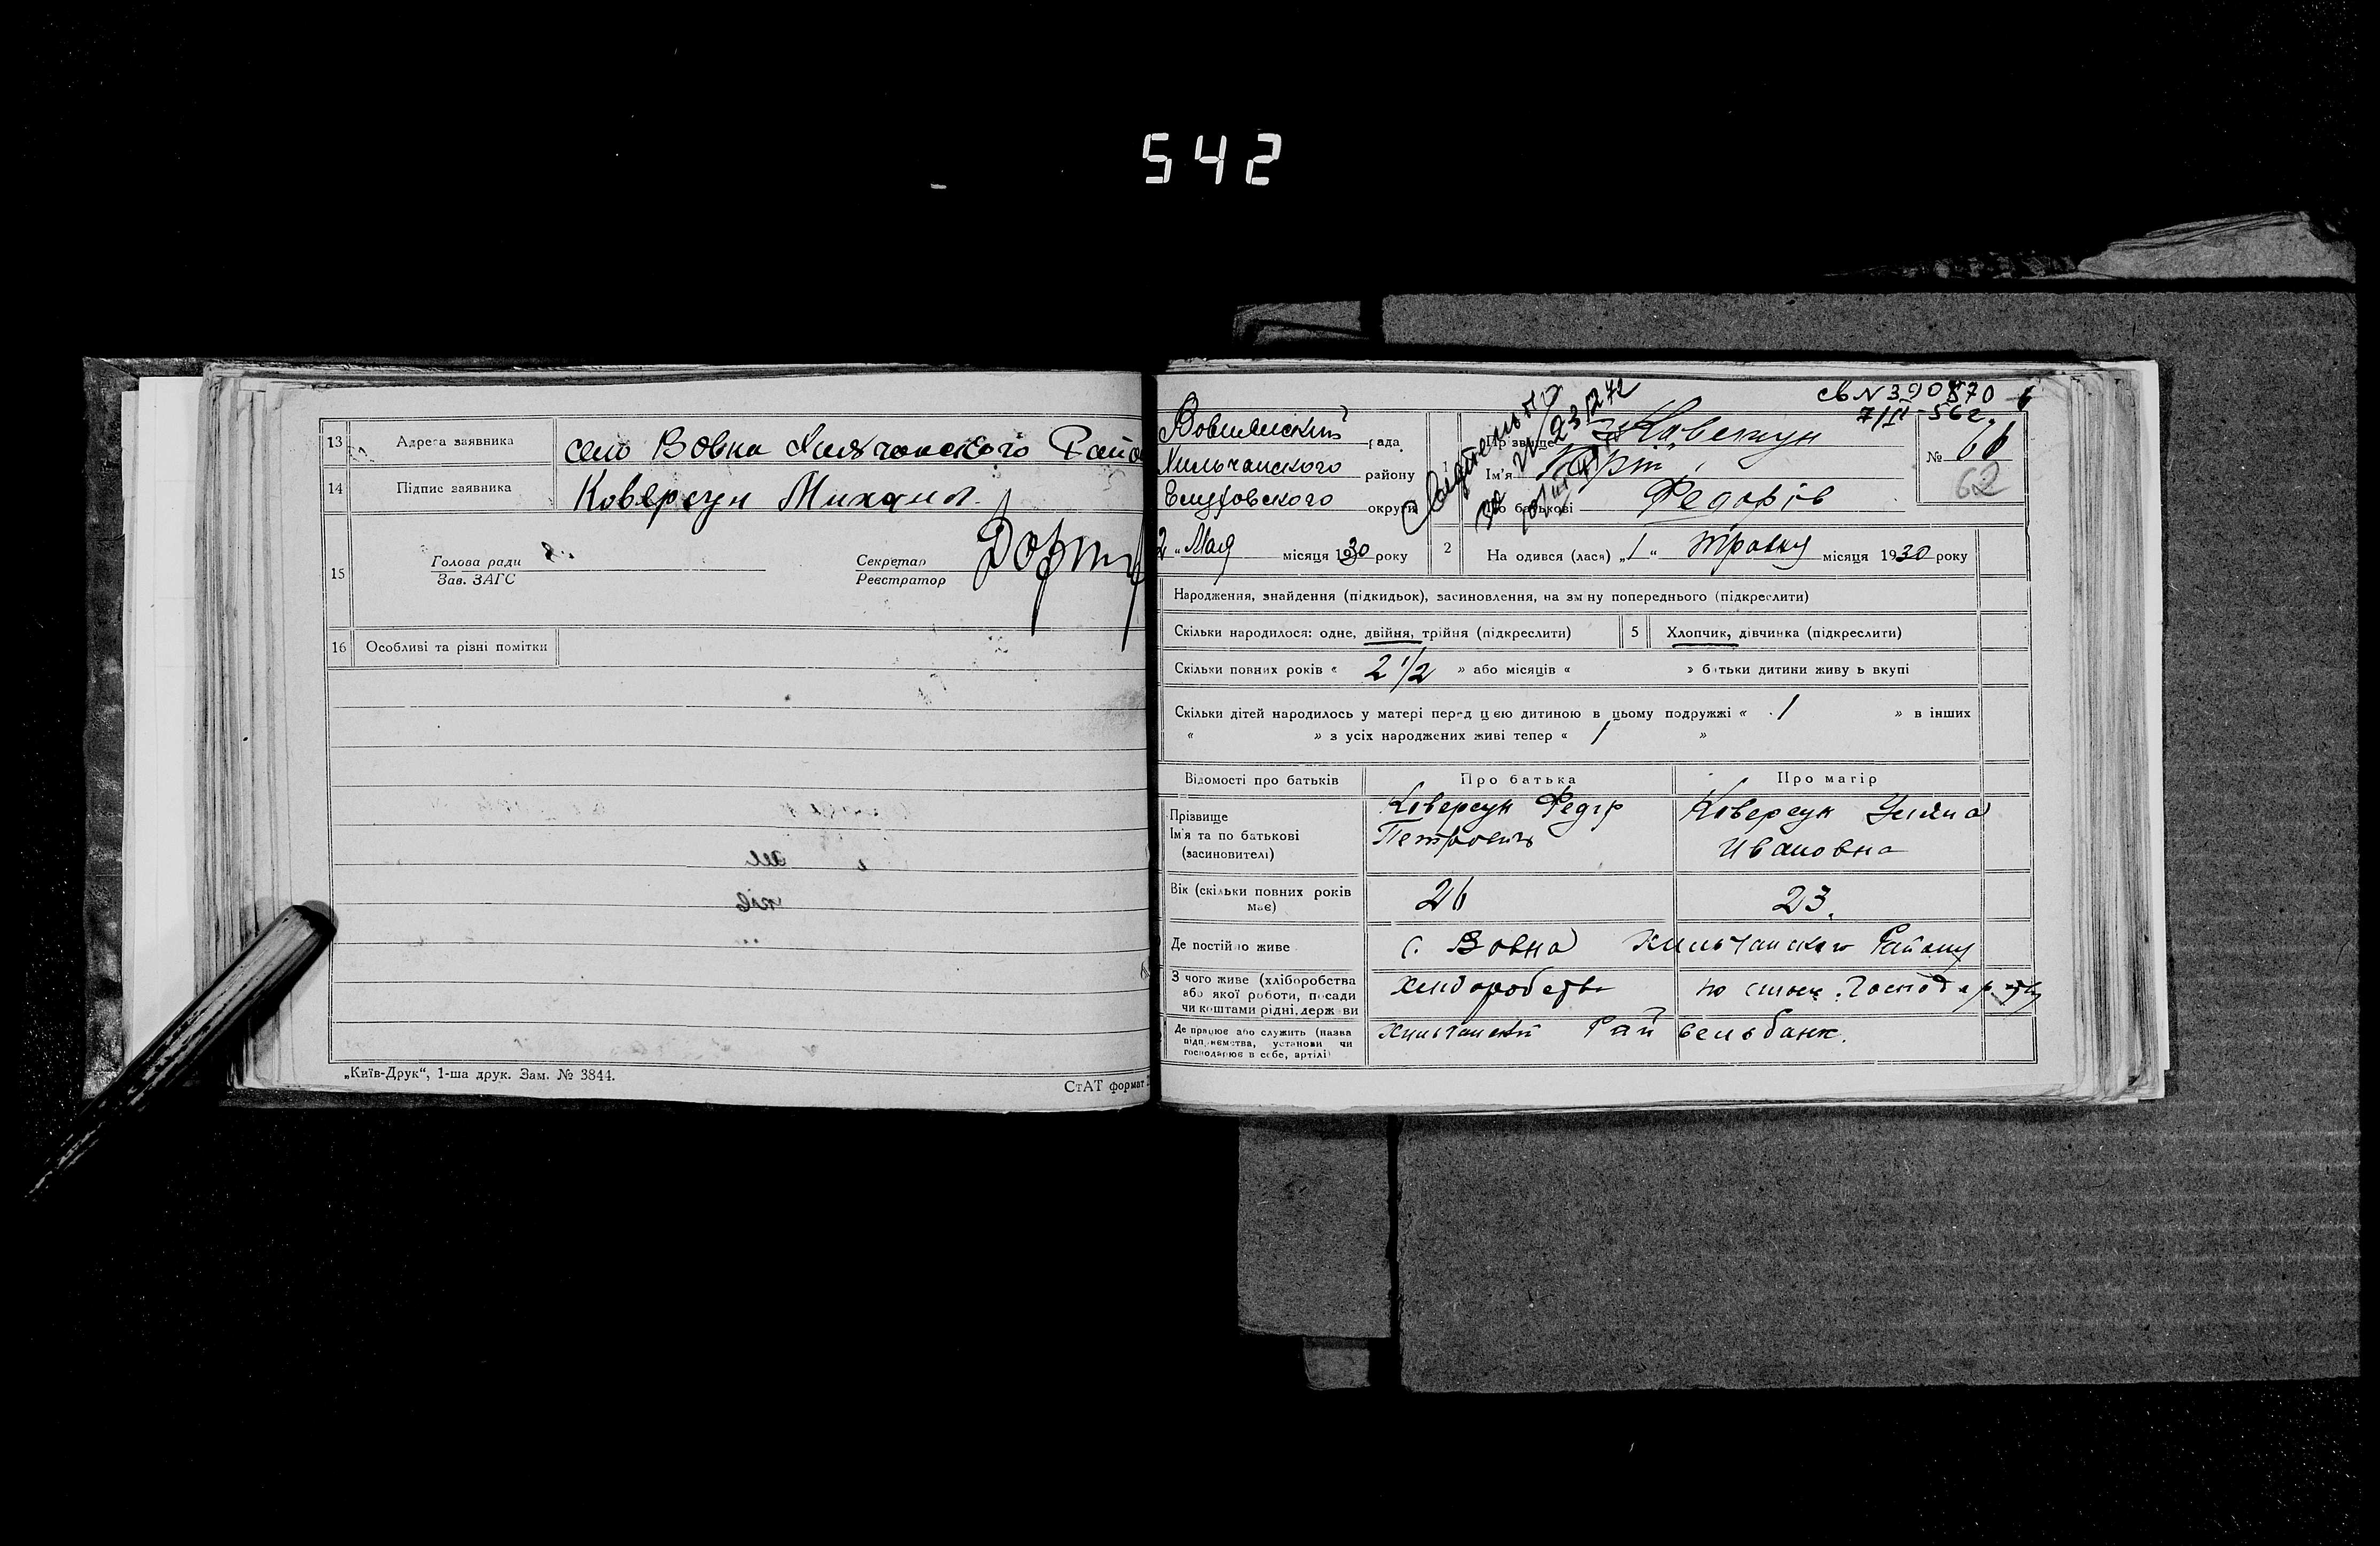 542
13 Адреса заявника село Вовна Хильчанского Райо
14 Підпис заявника Коверсун Михаил.
15 Голова ради
Зав. ЗАГС
Секретар
Реєстратор
16 Особливі та різні помітки
„Київ-Друк“, 1-ша друк. Зам. № 3844.
СтАТ формат
св N 390870
7/II-56г.
Вовнянский рада
Хильчанского району
округи
Прізвище Коверсун
Ім'я
По батькові Федорів
№ 66
62
2 „ Мая місяця 1930 року
2 На одився (лася) „1“ травня місяця 1930 року
Народження, знайдення (підкидьок), засиновлення, на зм ну попереднього (підкреслити)
Скільки народилося: одне, двійня, трійня (підкреслити)
5 Хлопчик, дівчинка (підкреслити)
Скільки повних років « 2 1/2 » або місяців « » батьки дитини живу ь вкупі
Скільки дітей народилось у матері перед цією дитиною в цьому подружжі « 1 » в інших
« » з усіх народжених живі тепер « 1 »
Відомості про батьків Про батька Про матір
Прізвище
Ім'я та по батькові
(засиновителі)
Коверсун Федір
Петрович
Коверсун Уляна
Ивановна
Вік (скільки повних років має) 26 23.
Де постійно живе с. Вовна Хильчанского Району
З чого живе (хліборобства
або якої роботи, посади
чи коштами рідні, держ ви
хлиборобств
Де працює або служить (назва
підприємства, установи чи
господарює в себе, артілі)
Хильчанский Рай сельбанк.